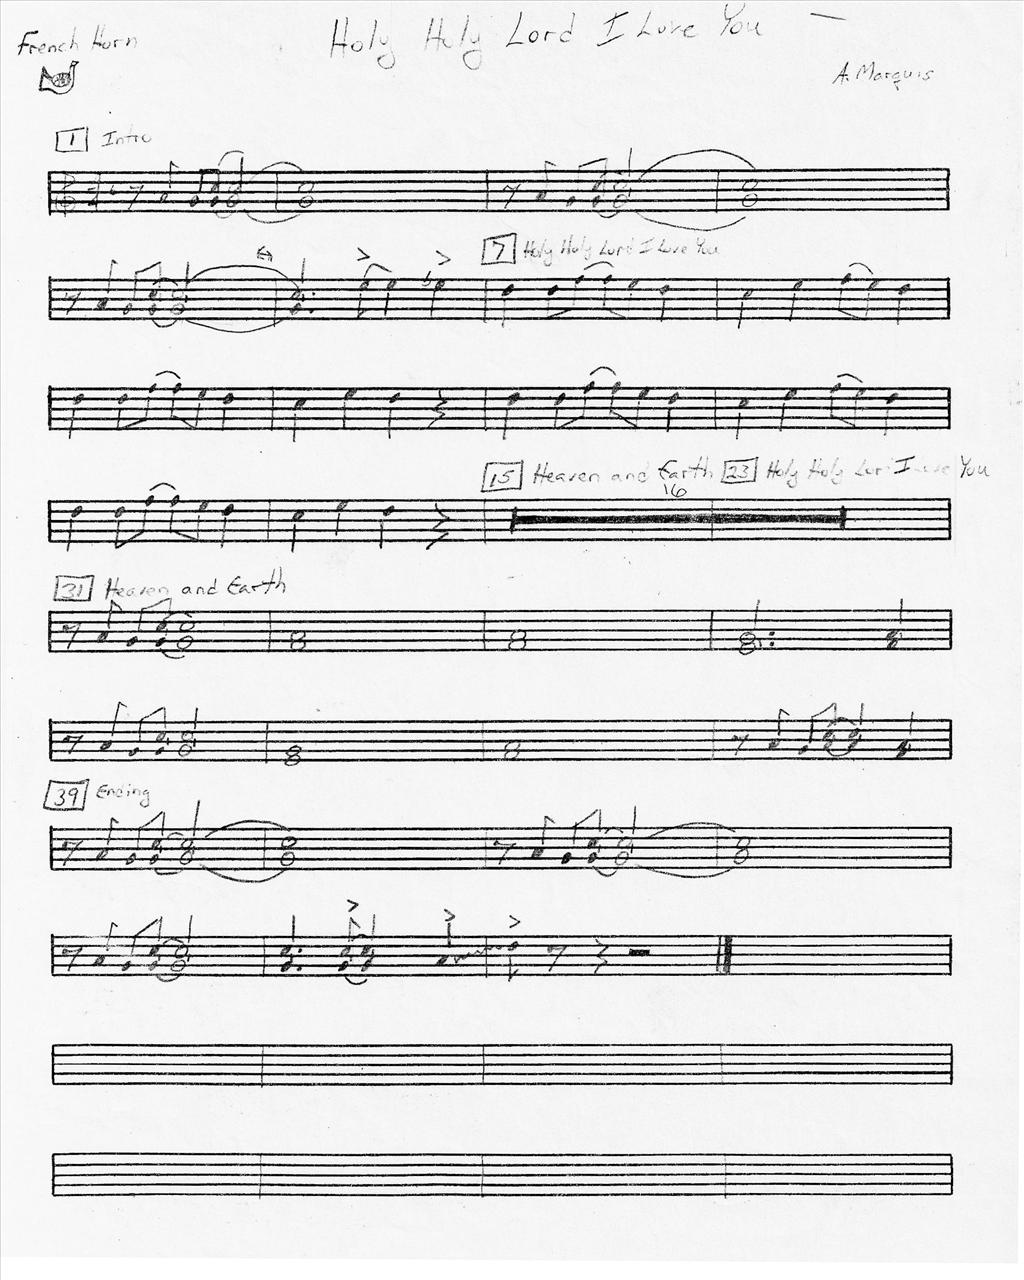 French Horn
Holy Holy Lord I Love You
A. Marquis
1 Intro
7 Holy Holy Lord I Love You
15 Heaven and Earth 23 Holy Holy Lord I Love You
16
31 Heaven and Earth
39 Ending